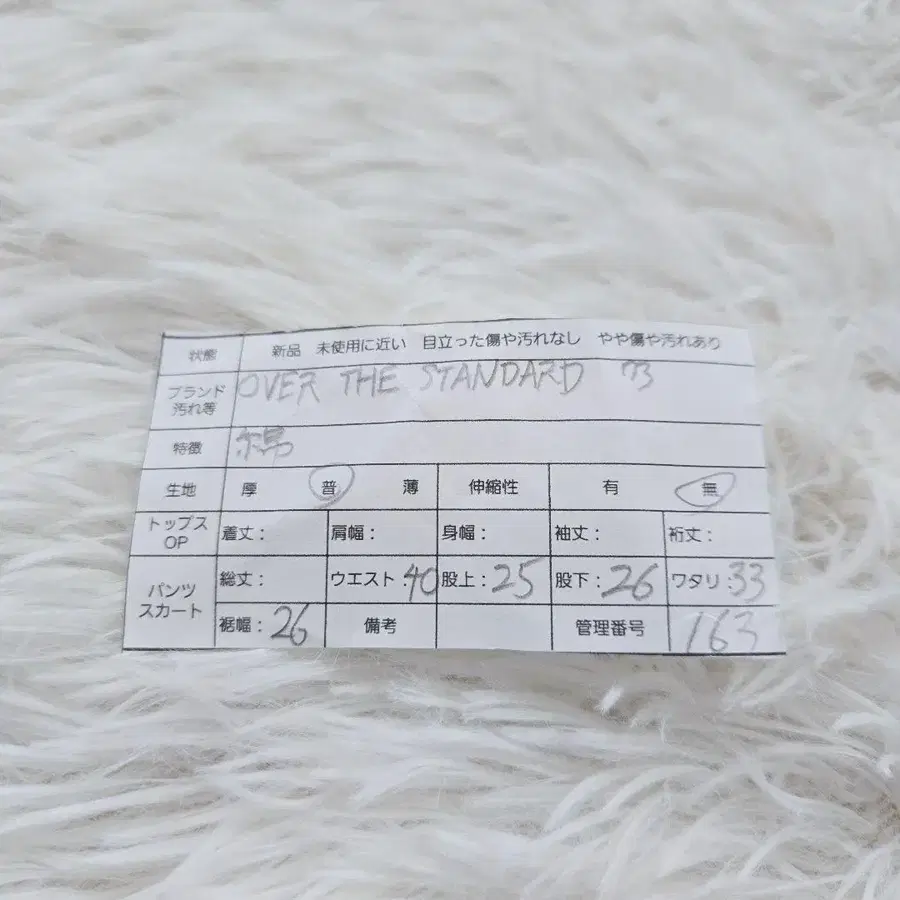 状態 新品 未使用に近い 目立った傷や汚れなし やや傷や汚れあり
ブランド OVER THE STANDARD
汚れ等
特徴 綿
生地 厚 普 薄 伸縮性 有 無
トップス OP 着丈: 肩幅: 身幅: 袖丈: 裄丈:
パンツ スカート 総丈: ウエスト:40 股上:25 股下:26 ワタリ:33
裾幅:26 備考 管理番号 163